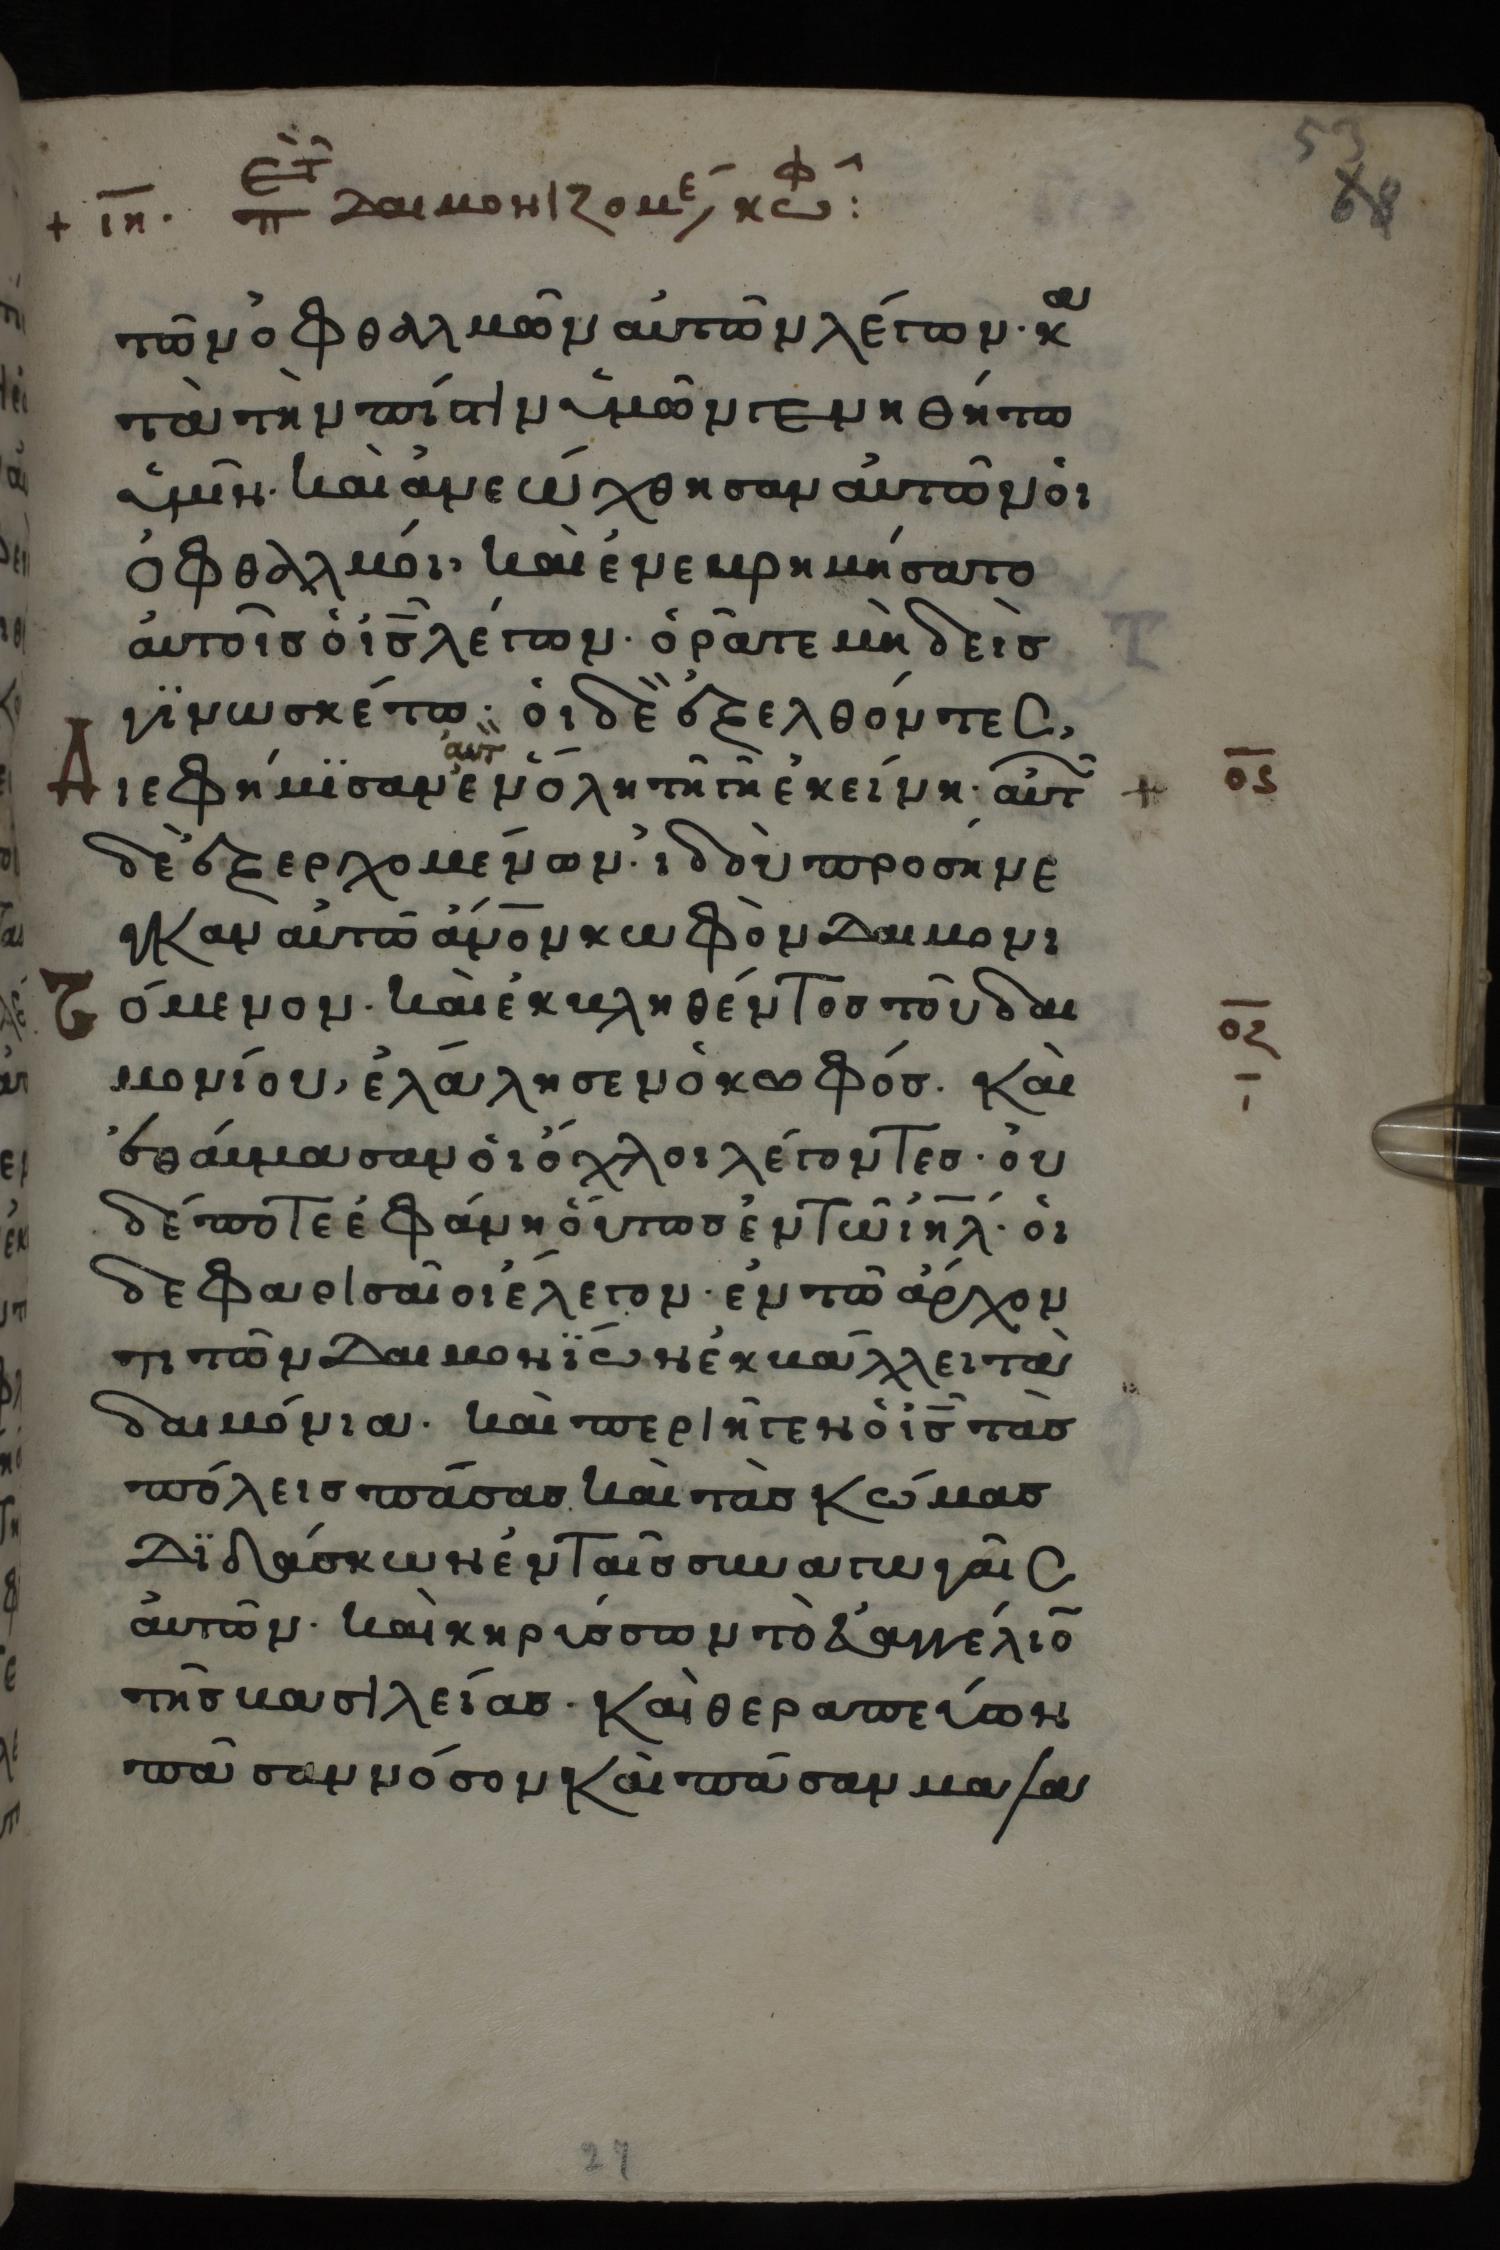 + ιη. περὶ τοῦ δαιμονιζομέ κωφ:
53
68
τῶν ὀφθαλμῶν αὐτῶν λέγων· κα
τὰ τὴν πίστιν ὑμῶν γενηθήτω
ὑμῖν. καὶ ἀνεώχθησαν αὐτῶν ὁι
ὀφθαλμόι, καὶ ἐνεβρημήσατο
ἀυτοῖς ὁ ις λέγων. ὁρᾶτε μὴδεὶς
γϊνωσκέτω· ὁι δὲ ἐξελθόντες,
Διεφήμϊσαν ἀυτ ἐν ὅλη τῆ γῆ ἐκείνη· ἀυτ + ος
δὲ ἐξερχομένων. ἰδοὺ προσήνε
γκαν αὐτῶ ἄνον κωφὸν δαιμονι
Ζόμενον. καὶ ἐκβληθέντος τοῦ δαι οζ
μονίου, ἐλάλησεν ὁ κωφός. καὶ ι
ἐθάυμασαν ὁι ὄχλοι λέγοντες. ὀυ
δέποτε ἐφάνη ὅυτως ἐν τῶ ιηλ. ὁι
δε φαρισαῖοι ἔλεγον. ἐν τῶ ἄρχον
τι τῶν δαιμονϊων ἐκβάλλει τὰ
δαιμόνια. καὶ περιῆγεν ὁ ις τὰς
πόλεις πάσας καὶ τὰς κώμας
Δϊδάσκων ἐν ταῖς συναγωγαῖς
ἀυτῶν. καὶ κηρύσσων τὸ ἐυαγγέλιο
τῆς βασιλείας. καὶ θεραπεύων
πᾶσαν νόσον καὶ πᾶσαν μαλα
27